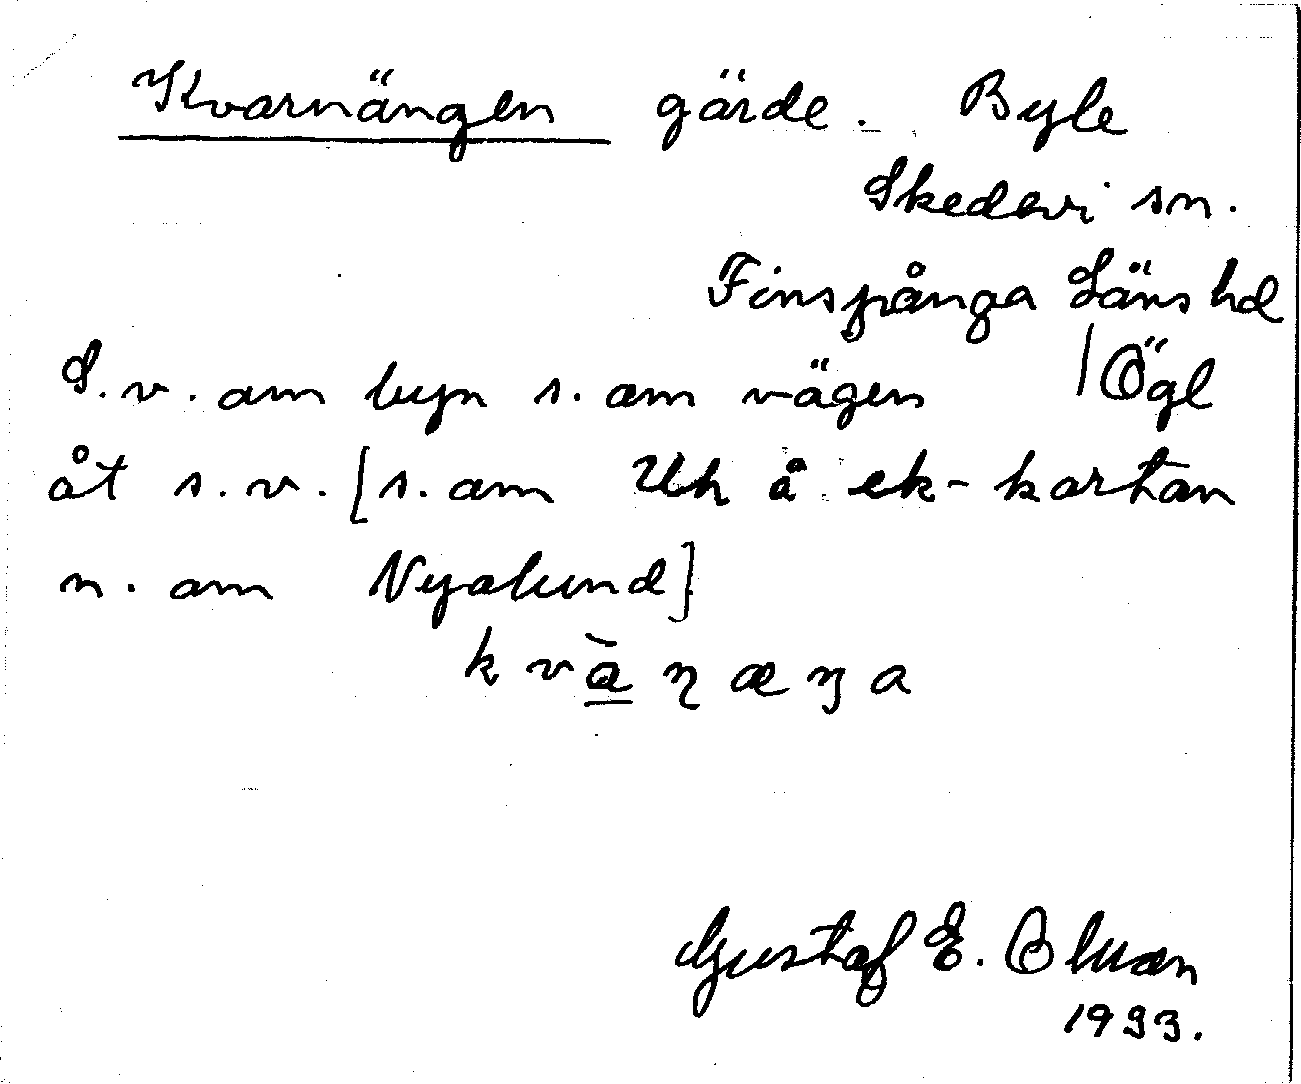 Kvarnängen gärde. Byle
Skedevi sn.
Finspånga Läns hd
S.v. om byn s. om vägen /Ögl
åt s.v. [s. om Uh å ek-kartan
n. om Nyalund]
kvàɳæŋa
Gustaf E.
1933.